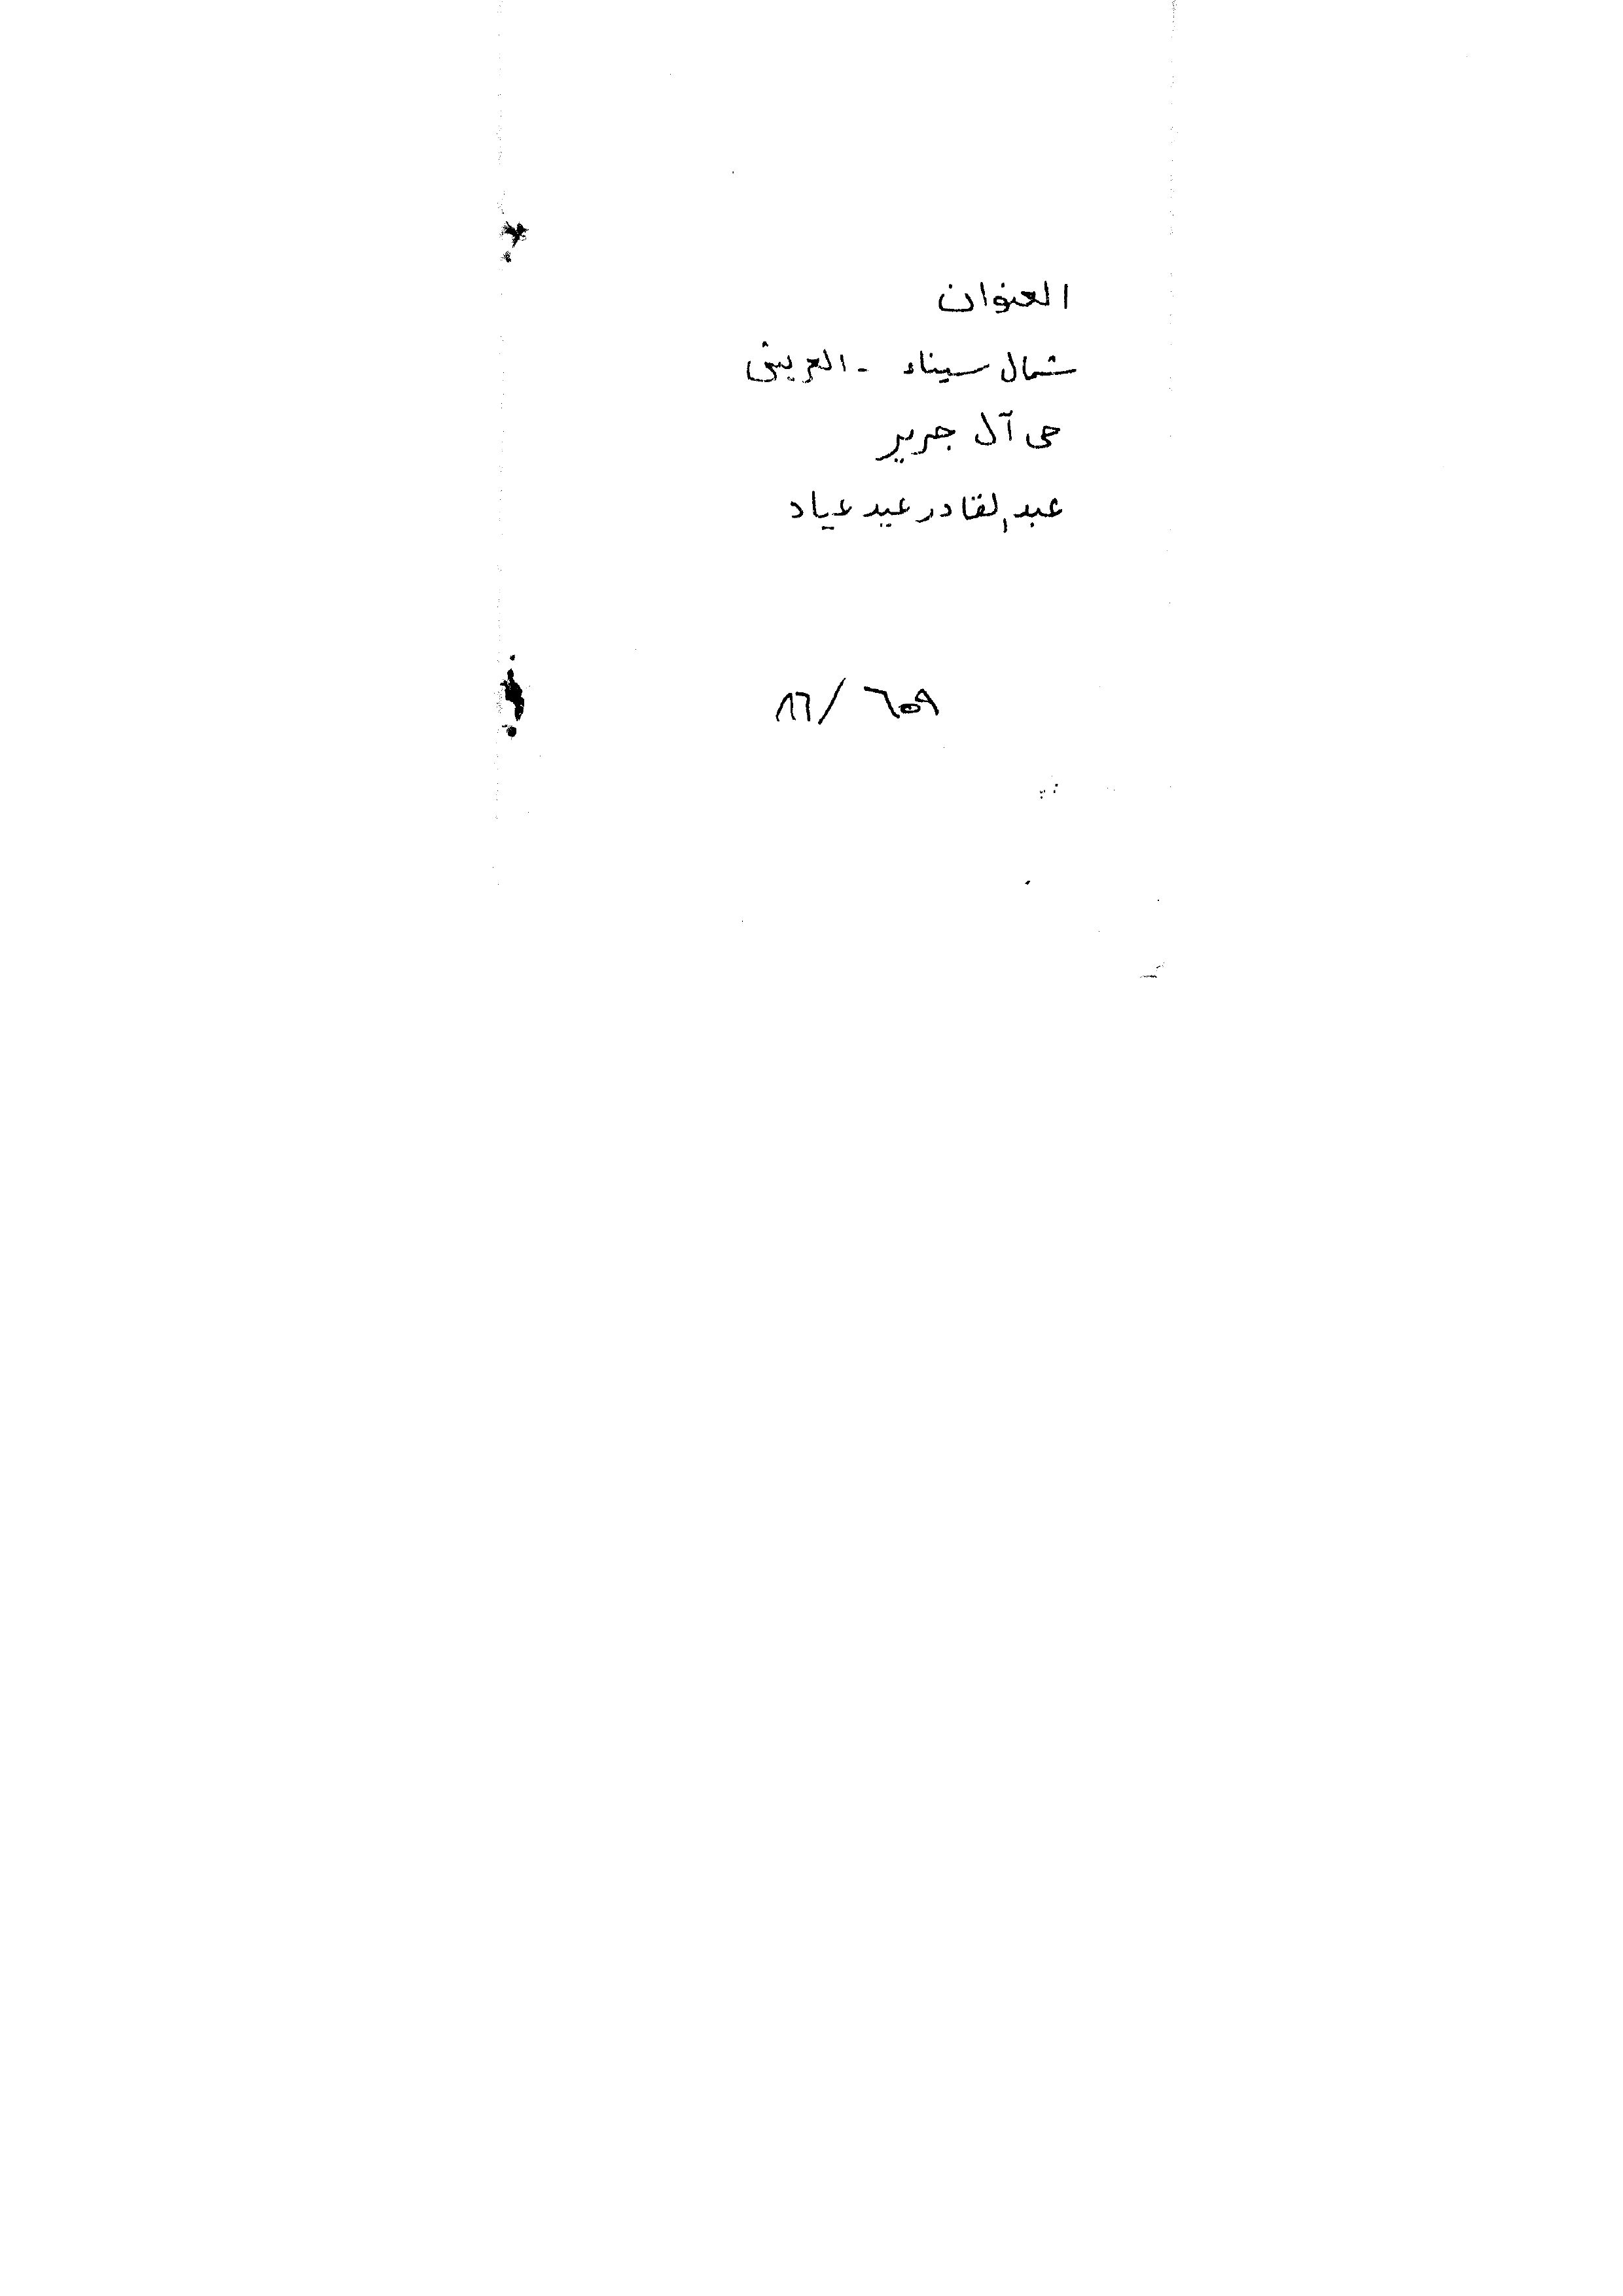 العنوان
شمال سيناء - العريش
حى آل جرير
عبد القادر عيد عياد